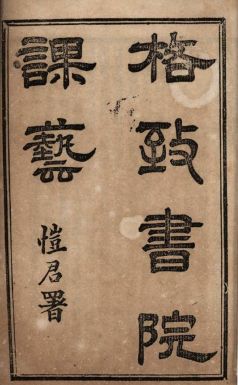 格致書院
課藝
愷君署